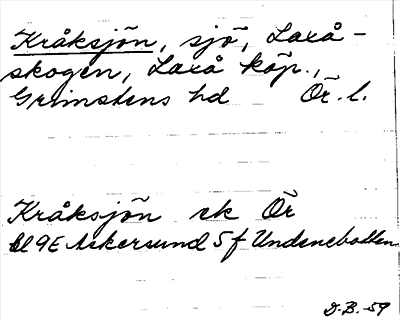 Kråksjön, sjö, Laxå-
skogen, Laxå köp.,
Grimstens hd Ör. l.
Kråksjön ek Ör
bl 9E Askersund 5 f Undenebotten
D.B. -59